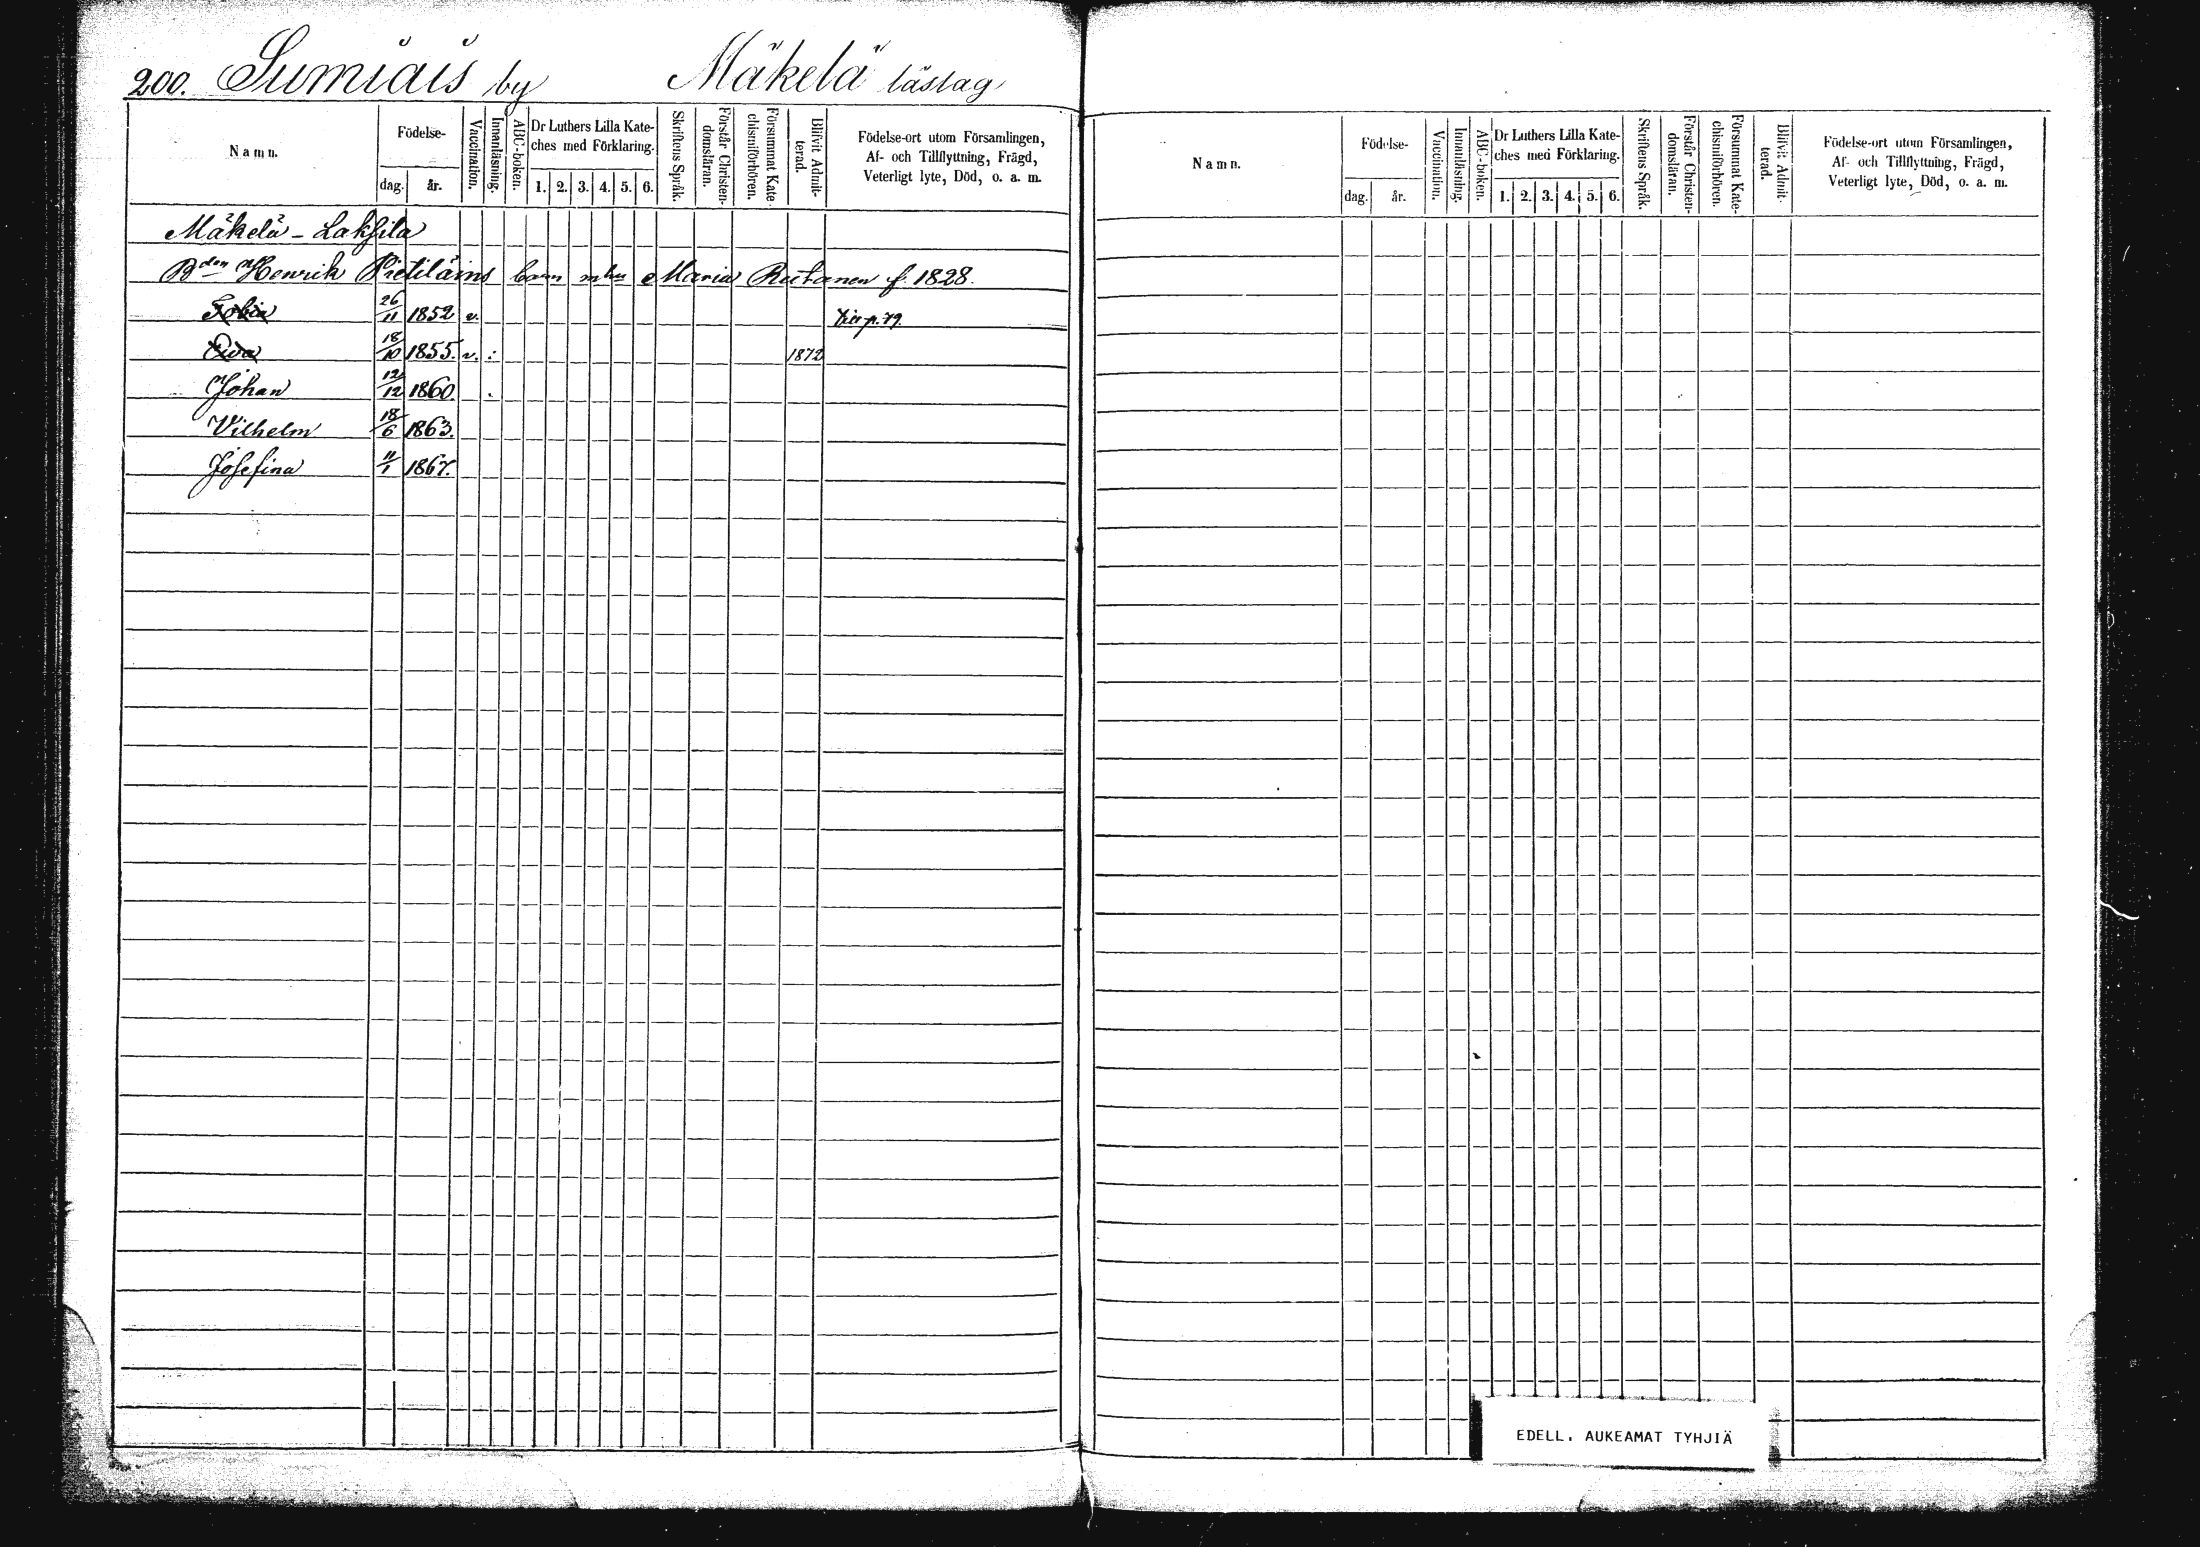 200. Sumiais by Mäkelä läslag
Namn.
Födelse-
dag. år.
Vaccination.
Innanläsning.
ABC-boken.
Dr Luthers Lilla Kate-
ches med Förklaring.
1. 2. 3. 4. 5. 6.
Skriftens Språk.
Förstår Christen-
domsläran.
Försummat Kate-
chismiförhören.
Blifvit Admit-
terad.
Födelse-ort utom Församlingen,
Af- och Tillflyttning, Frägd,
Veterligt lyte, Död, o. a. m.
Mäkelä - Laksila
Bden Henrik Pietiläins barn m hu Maria Rutanen f. 1828.
Tobia 26/11 1852 v. p. 79.
Eva 18/10 1855. v. : 1872
Johan 12/12 1860.
Vilhelm 18/6 1863.
Josefina 11/1 1867.
Namn.
Födelse-
dag. år.
Vaccination.
Innanläsning.
ABC-boken.
Dr Luthers Lilla Kate-
ches med Förklaring.
1. 2. 3. 4. 5. 6.
Skriftens Språk.
Förstår Christen-
domsläran.
Försummat Kate-
chismiförhören.
Blifvit Admit-
terad.
Födelse-ort utom Församlingen,
Af- och Tillflyttning, Frägd,
Veterligt lyte, Död, o. a. m.
EDELL. AUKEAMAT TYHJIÄ